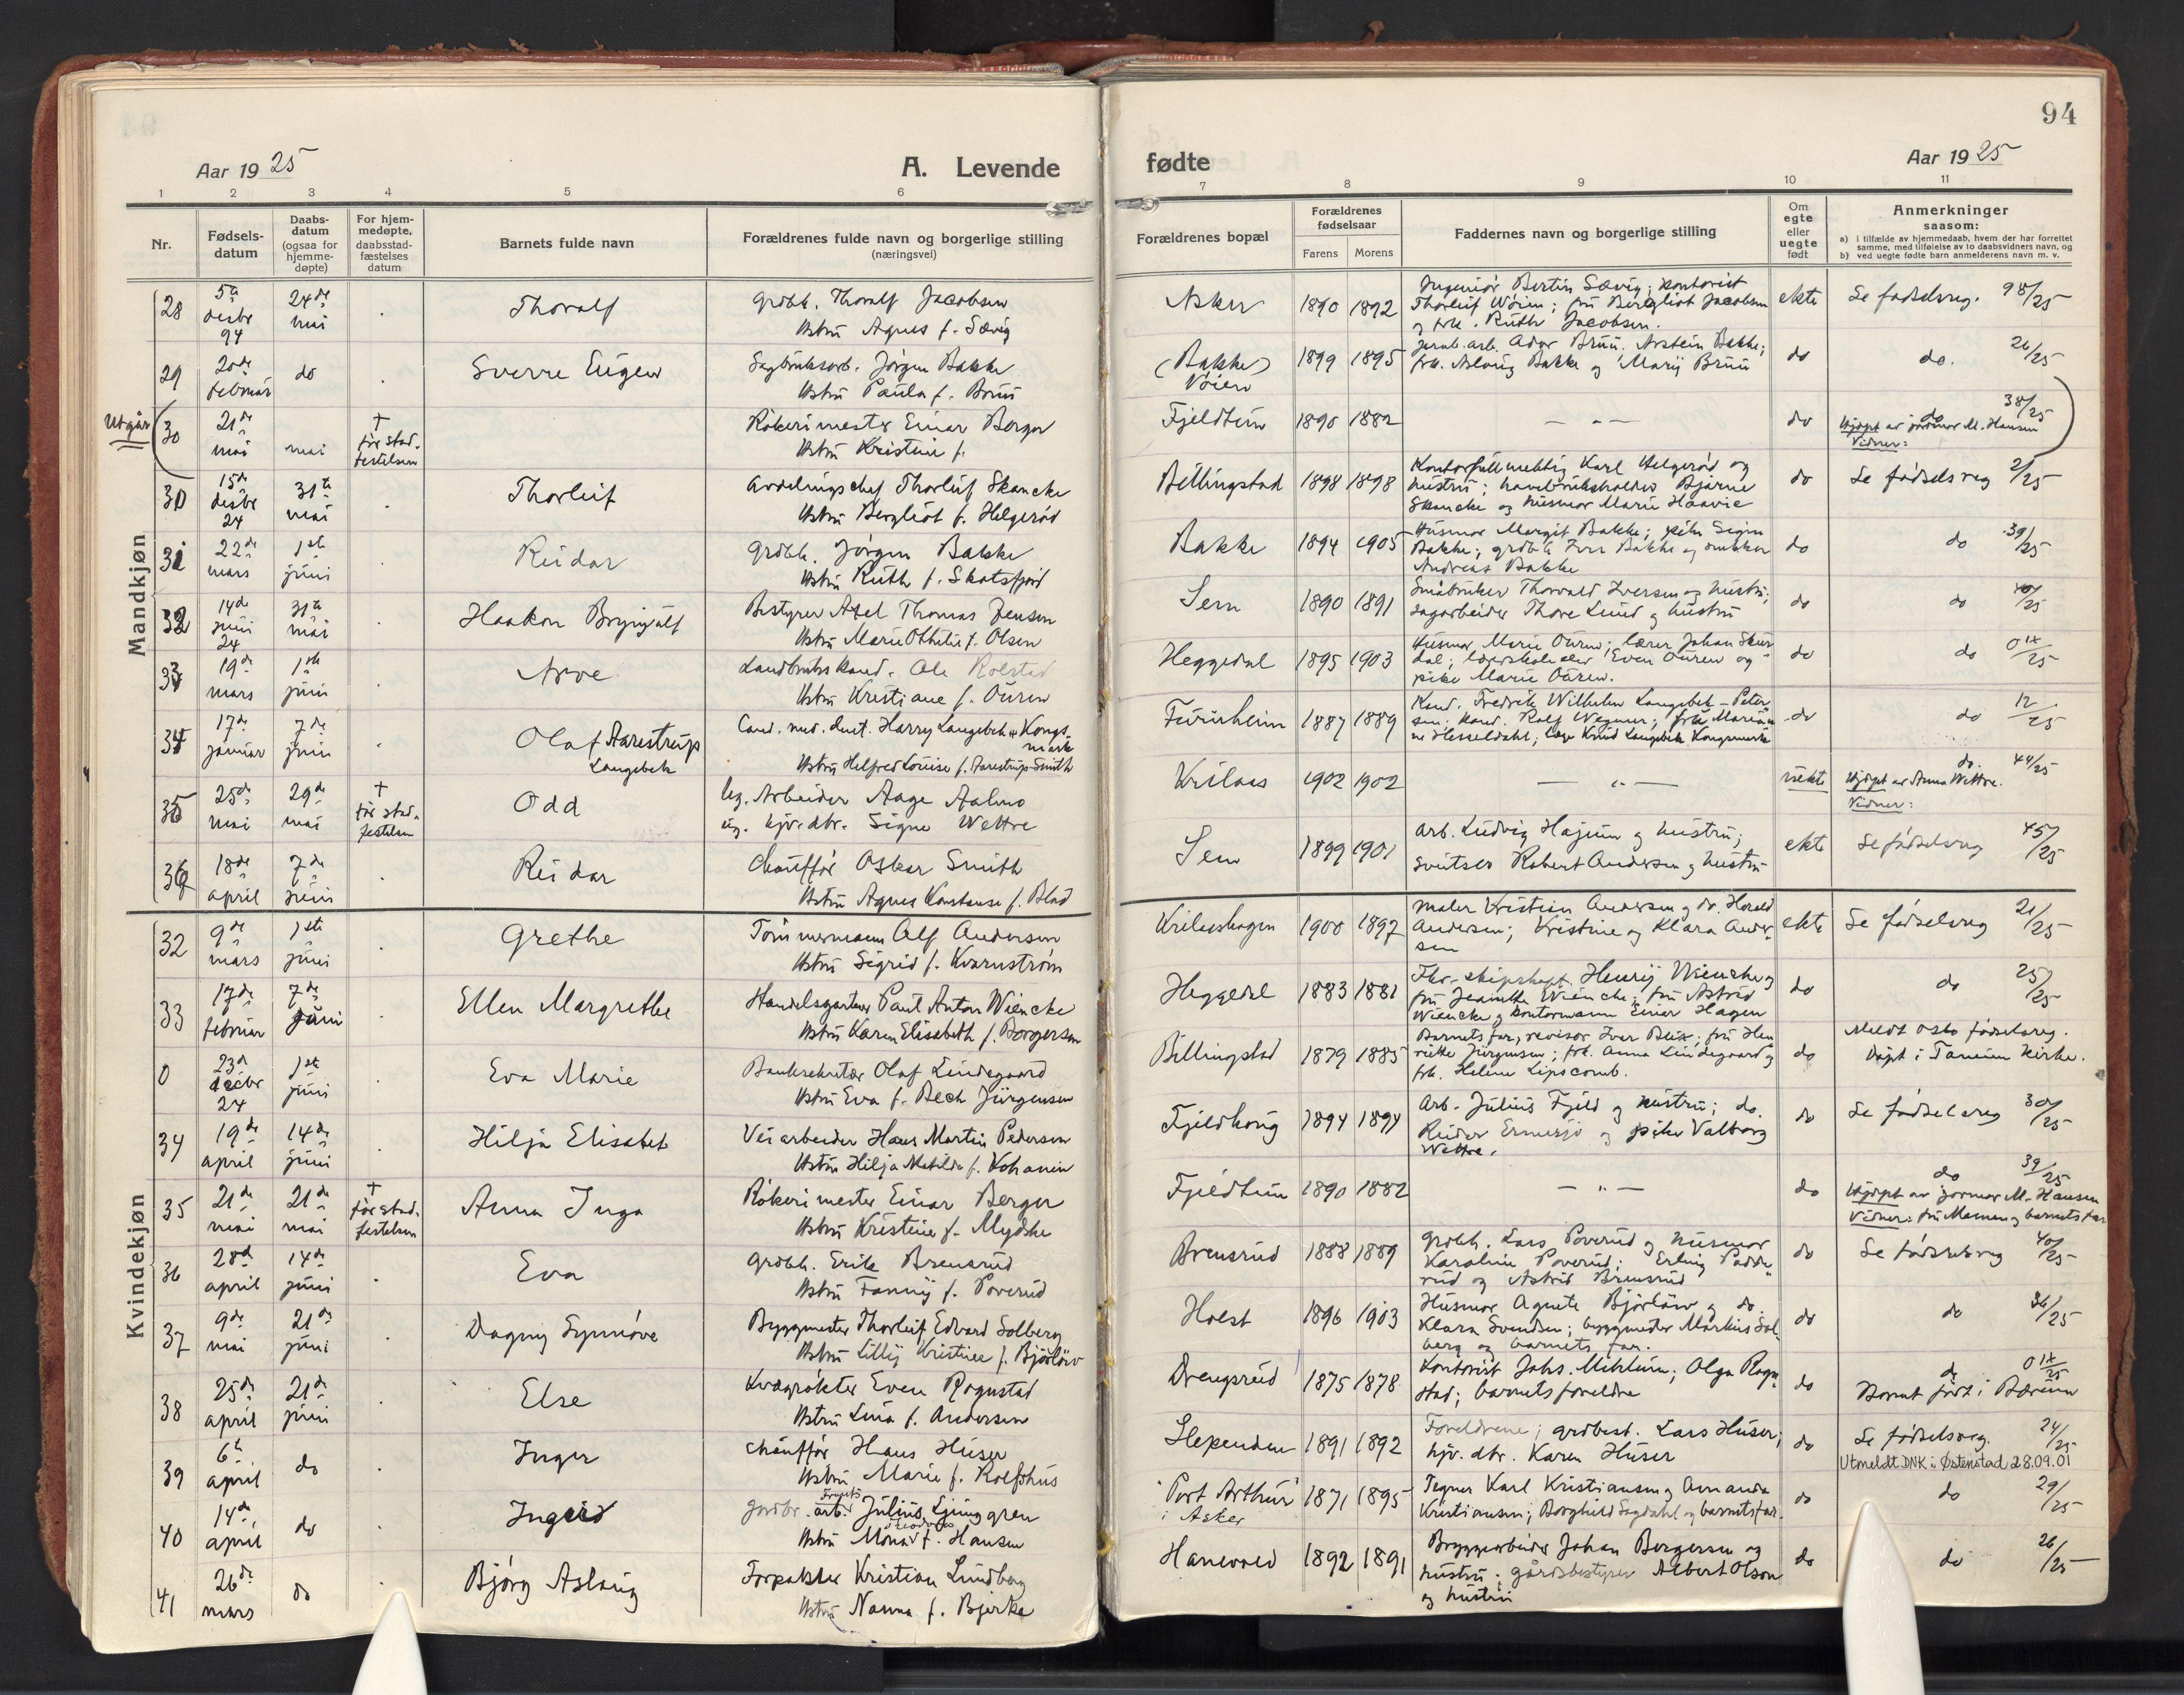 94
Aar 1925
A. Levende
fødte
Aar 1925
1 2 3 4 5 6 7 8 9 10 11
Nr.
Fødsels-
datum
Daabs-
datum
(ogsaa for
hjemme-
døpte)
For hjem-
medøpte,
daabsstad-
fæstelses
datum
Barnets fulde navn
Forældrenes fulde navn og borgerlige stilling
(næringsvei)
Forældrenes bopæl
Forældrenes
fødselsaar
Farens Morens
Faddernes navn og borgerlige stilling
Om
egte
eller
uegte
født
Anmerkninger
saasom:
a) i tilfælde av hjemmedaab, hvem der har forrettet
samme, med tilføielse av to daabsvidners navn, og
b) ved uegte fødte barn anmelderens navn m. v.
Mandkjøn
28 5te desbr 24 24de mai Thoralf
Grdbk. Thoralf Jacobsen
Hstru Agnes f. Sævig
Asker 1890 1892
Ingeniør Bertin Sævig; kontorist
Thorleif Wøien; fru Bergliot Jacobsen
og frk. Ruth Jacobsen.
ekte Se fødselsreg. 98/25
29 20de februar do Sverre Eugen
Sagbruksarb. Jørgen Bakke
Hstru Paula f. Bruu
(Bakke) Vøien 1899 1895
Jernb.arb. Adar Bruu. Arstein Bakke;
frk. Aslaug Bakke og Marij Bruu
do do. 26/25
Utgår
30 21de mai mai † før stad-
festelsen
Røkerimester Einar Berger
Hstru Kristine f.
Fjeldtun 1890 1882 — " — do do 38/25
Hjdpt av jordmor M. Hansen
Vidner:
30 15de desbr 24 31te mai Thorleif
Avdelingschef Thorleif Skancke
Hstru Bergliot f. Helgerød
Billingstad 1898 1898
Kontorfullmektig Karl Helgerød og
hustru; havebruksholder Bjarne
Skancke og husmor Marie Haavie
do Se fødselsreg 2/25
31 22de mars 1ste juni Reidar
Grdbk. Jørgen Bakke
Hstru Ruth f. Skotsfjord
Bakke 1894 1905
Husmor Margit Bakke; pike Sigrn
Bakke; grdbk Iver Bakke og snekker
Andreas Bakke
do do 39/25
32 14de juni 24 31te mai Haakon Brynjulf
Bestyrer Axel Thomas Jensen
Hstru Marie Othilie f. Olsen
Sem 1890 1891
Småbruker Thorvald Iversen og hustru;
sagarbeider Thore Lund og hustru
do do 40/25
33 19de mars 1ste juni Arve
Landbrukskand. Ole Rolstad
Hstru Kristiane f. Ouren
Heggedal 1895 1903
Husmor Marie Ouren; lærer Johan Skur-
dal; lærerskoleelev Even Ouren og
pike Marie Ouren.
do do 0 IX/25
34 17de januar 7de juni Olaf Aarestrup
Langebek
Cand. med. dent. Harry Langebek Kongs-
mark
Hstru Helfred Louise f. Aarestrup-Smith
Furuheim 1887 1889
Kand. Fredrik Wilhelm Langebek-Peter-
sen; kand. Rolf Wegner; frk Marian-
ne Hesseldahl; læge Knud Langebek Kongsmark
do do 12/25
35 25de mai 29de mai † før stad-
festelsen Odd
Ug. Arbeider Aage Aalmo
ug. hjv. dtr. Signe Wettre
Krilaas 1902 1902 — " — uekte do. 44/25
Hjdpt av Anna Wettre.
Vidner:
36 18de april 7de juni Reidar
Chauffør Oskar Smith
Hstru Agnes Konstanse f. Blad
Sem 1899 1901
Arb. Ludvig Hajum og hustru;
sveitser Robert Andersen og hustru
ekte Se fødselsreg 45/25
Kvindekjøn
32 9de mars 1ste juni Grethe
Tømmermann Alf Andersen
Hstru Sigrid f. Kvarnstrøm
Krilaashagen 1900 1897
Maler Kristian Andersen og do. Harald
Andersen; Kristine og Klara Ander-
sen
ekte Se fødselsreg 21/25
33 17de februar 7de juni Ellen Margrethe
Handelsgartner Paul Anton Wiencke
Hstru Karen Elisabeth f. Borgersen
Heggedal 1883 1881
Fhv. skipskapt. Henrij Wiencke og
fru Jeanette Wiencke; fru Astrid
Wiencke og kontormann Einar Hagen
do do 25/25
0 23de decbr 24 1ste juni Eva Marie
Banksekretær Olaf Lindegaard
Hstru Eva f. Bech Jürgensen
Billingstad 1879 1885
Barnets far, revisor Iver Beix; fru Hen-
riette Jürgensen; frk. Anna Lindegaard og
frk. Helene Lipscomb.
do Meldt Oslo fødselsreg.
Døpt i Tanum kirke.
34 19de april 14de juni Hilja Elisabet
Veiarbeider Hans Martin Pedersen
Hstru Hilja Matilde f. Kohanin
Fjeldhoug 1894 1894
Arb. Julius Fjeld og hustru; do.
Reidar Ermesjø og pike Valborg
Wettre.
do Se fødselsreg 30/25
35 21de mai 21de mai † før stad-
festelsen Anna Inga
Røkerimester Einar Berger
Hstru Kristine f. Mydske
Fjeldtun 1890 1882 — " — do do 39/25
Hjdpt av jormor M. Hansen
Vidner: fru Mamen og barnets far
36 28de april 14de juni Eva
Grdbk. Erik Brensrud
Hstru Fannij f. Poverud
Brensrud 1888 1889
Grdbk. Lars Poverud og husmor
Karoline Poverud; Erling Padde-
rud og Astrid Brensrud
do Se fødselsreg 40/25
37 9de mai 21de juni Dagny Synnøve
Byggmester Thorleif Edvard Solberg
Hstru Lillij Kristine f. Bjørlöw
Holst 1896 1903
Husmor Agnete Bjørlöw og do.
Klara Svendsen; byggmester Markus Sol-
berg og barnets far.
do do 36/25
38 25de april 21de juni Else
Kvægrøkter Even Rognstad
Hstru Lina f. Andersen
Drengsrud 1875 1878
Kontorist Johs. Mehlum; Olga Rogn-
stad; barnets foreldre
do do 0 IX/25
Barnet født i Bærum
39 6te april do Inger
Chauffør Hans Huser
Hstru Marie f. Rolfshus
Slependen 1891 1892
Foreldrene; grdbest. Lars Huser;
hjv. dtr. Karen Huser
do Se fødselsreg. 24/25
Utmeldt DNK i Østenstad 28.09.01
40 14de april do Ingerid
Jordbr. arb. Julius Ljunggren
Hstru Mona f. Hansen
"Port Arthur"
i Asker 1871 1895
Tegner Karl Kristiansen og Amanda
Kristiansen; Borghild Sagdahl og barnets far.
do do 29/25
41 26de mars do Bjørg Aslaug
Forpakter Kristian Lundberg
Hstru Nanna f. Bjerke
Hanevold 1892 1891
Bryggearbeider Johan Bergersen og
hustru; gårdsbestyrer Albert Olson
og hustru
do do 26/25